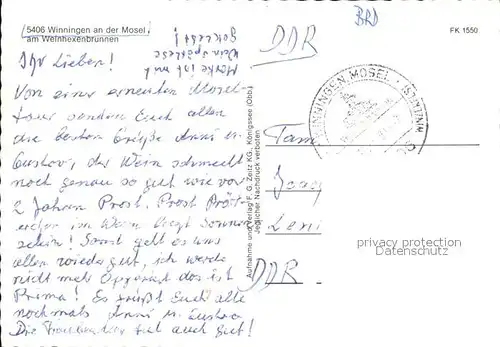 5406 Winningen an der Mosel
am Weinhexenbrunnen
FK 1550
BRD
DDR
Marke ist mit
Wein Spätlese
geklebt!
Ihr Lieben!
Von einer erneuten Mosel-
tour senden Euch allen
die besten Grüße Anni u.
Gustav, der Wein schmeckt
noch genau so gut wie vor
2 Jahren Prost, Prost Pröst-
erchen im Wein liegt Sonnen
schein! Sonst geht es uns
allen wieder gut, ich werde
nicht mehr das ist
Prima! Es grüßt Euch alle
nochmals Anni u. Gustav
Die tut auch gut!
Aufnahme und Verlag F. G. Zeitz KG., Königssee (Obb.)
Jeglicher Nachdruck verboten
WINNINGEN MOSEL
Fam
Leni
DDR
privacy protection
DATENSCHUTZ